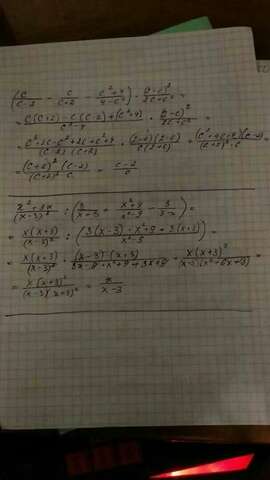 (c/(c-2) - c/(c+2) - (c²+4)/(4-c²)) · (2-c)²/(2c+c²) =
= (c(c+2) - c(c-2) + (c²+4))/(c²-4) · (2-c)²/(2c+c²) =
= (c²+2c-c²+2c+c²+4)/((c-2)(c+2)) · (2-c)(2-c)/(c(2+c)) = (c²+4c+4)(c-2)/((c+2)²·c) =
= (c+2)²(c-2)/((c+2)² c) = (c-2)/c
(x²+3x)/(x-3)² : (3/(x+3) + (x²+9)/(x²-9) - 3/(3-x)) =
= x(x+3)/(x-3)² : ((3(x-3) + x²+9 + 3(x+3))/(x²-9)) =
= x(x+3)/(x-3)² · (x-3)·(x+3)/(3x-9+x²+9+3x+9) = x(x+3)²/((x-3)(x²+6x+9)) =
= x(x+3)²/((x-3)(x+3)²) = x/(x-3)